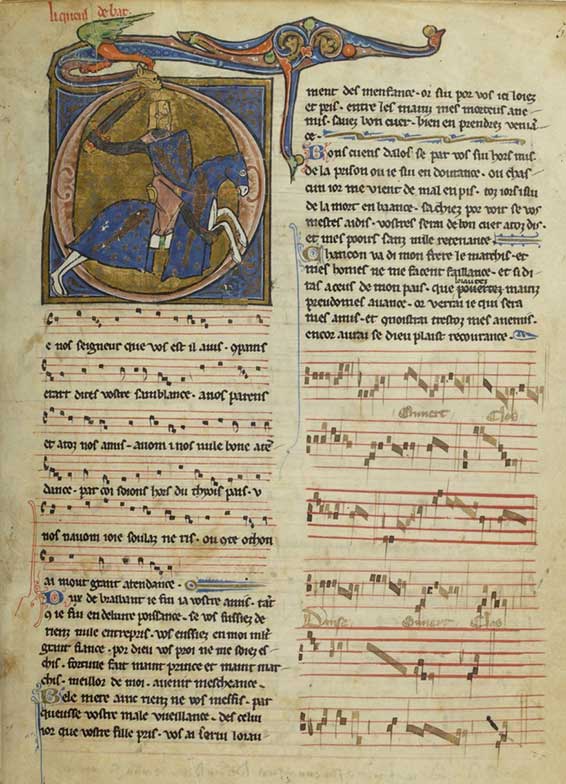 li quens de bar.
e nos seigneur que vos est il auis. 9paniz
ert dites vostre samblance. a nos parens
et a toz nos amis. auom i nos nule bone até
dance. par coi soions hors du thyois pais. v
nos nauom ioie soulaz ne ris. ou cte othon
ai mout grant atendance.
Dux de braibant ie fui ia vostre amis. tāt
9 ie fui en deliure poissance. se vos fussiez de
riens nule entrepris. vos eussiez en moi mlt
grant fiance. por dieu vos proi ne me soiez es
chis. fortune fait maint prince et maint mar
chis. meillor de moi. auenir mescheance.
Bele mere ainc riens ne vos meffis. par
queusse vostre male vueillance. des celui
ior que vostre fille pris. vos ai serui loiau
ment des menfance. or sui por vos ici loiez
et pris. entre les mains mes morteus ane
mis. sauez bon cuer. bien en prendrez venia
ce.
Bons cuens dalos se par vos sui hors mis.
de la prison ou ie sui en doutance. ou chas
cun ior me vient de mal en pis. toz iors i sui
de la mort en baance. sachiez por voir se vos
mestes aidis. vostres serai de bon cuer a toz dis.
et mes pooirs sanz nule retenance.
Chancon va di mon frere le marchis. et
mes homes ne me facent faillance. et si di
ras a ceus de mon pais. que loiautez mainz
preudomes auance. or verrai ie qui sera
mes amis. et quoistrai trestoz mes anemis.
encor aurai se dieu plaist recourance.
Ouuert Clos
Danse Ouuert Clos